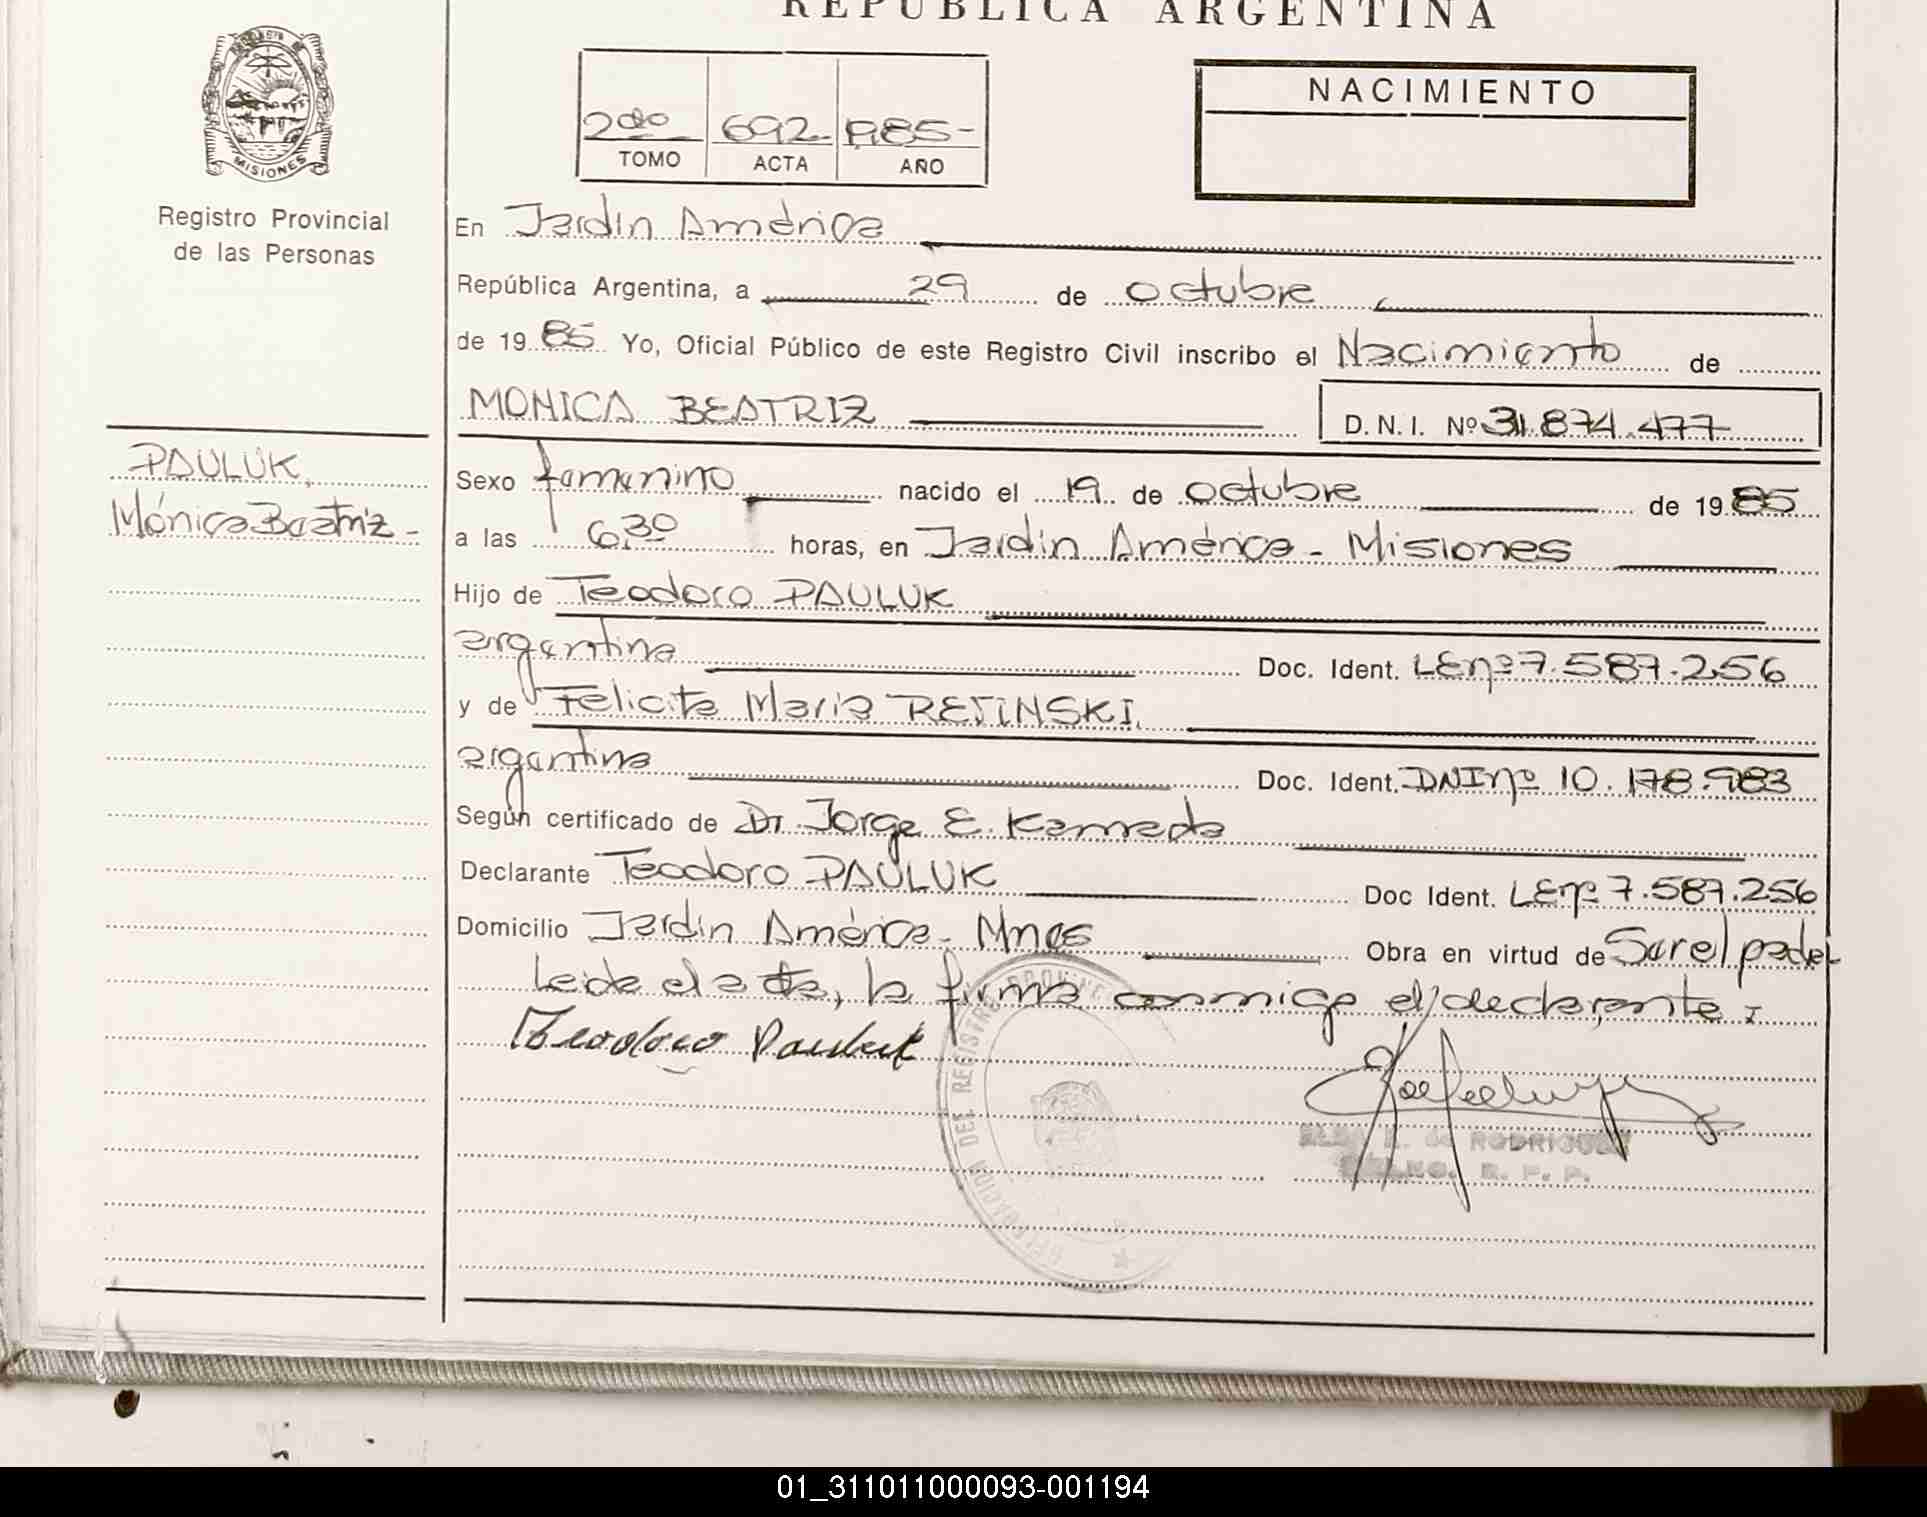 REPUBLICA ARGENTINA
MISIONES
Registro Provincial
de las Personas
2do 692- 1985-
TOMO ACTA AÑO
NACIMIENTO
En Jardín América
República Argentina, a 29 de octubre
de 1985 Yo, Oficial Público de este Registro Civil inscribo el Nacimiento de
MONICA BEATRIZ D.N.I. Nº 31.874.477
PAULUK,
Mónica Beatriz-
Sexo femenino nacido el 19 de octubre de 1985
a las 6,30 horas, en Jardín América - Misiones
Hijo de Teodoro PAULUK
argentina Doc. Ident. LEnº 7.587.256
y de Felicita Maria REJINSKI
argentina Doc. Ident. DNInº 10.178.983
Según certificado de Dr. Jorge E. Kameda
Declarante Teodoro PAULUK Doc Ident. LEnº 7.587.256
Domicilio Jardín América - Mnes Obra en virtud de Ser el padre-
Leida el acta, la firma conmigo el declarante:
Teodoro Pauluk
DELEGACION DEL REGISTRO PROVINC
ELBA E. de RODRIGUEZ
R. P. P.
01_311011000093-001194